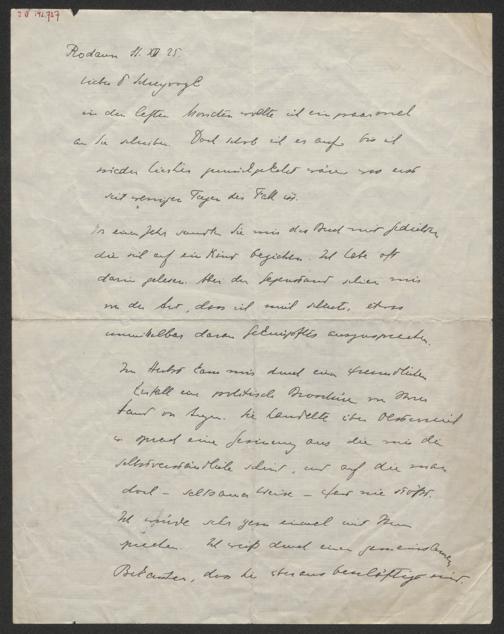 Rodaun 11. XII 25.
Lieber D Scheyvogl
in den letzten Monaten wollte ich ein paarmal
an Sie schreiben. Doch schob ich es auf, bis ich
wieder hierher zurückgekehrt wäre was erst
seit wenigen Tagen der Fall ist.
Vor einem Jahr sandten Sie mir das Buch mit Gedichten
die sich auf ein Kind beziehen. Ich habe oft
darin gelesen. Aber der Gegenstand schien mir
von der Art, dass ich mich scheute, etwas
unmittelbar daran Geknüpftes auszusprechen.
Im Herbst kam mir durch einen freundlichen
Zufall eine politische Broschüre von Ihrer
Hand vor Augen. Sie handelte über Österreich
u sprach eine Gesinnung aus die mir die
selbstverständliche scheint, und auf die man
doch – seltsamer Weise – fast nie stößt.
Ich würde sehr gern einmal mit Ihnen
sprechen. Ich weiß durch einen gemeinsamen
Bekannten, dass Sie überaus beschäftigt sind